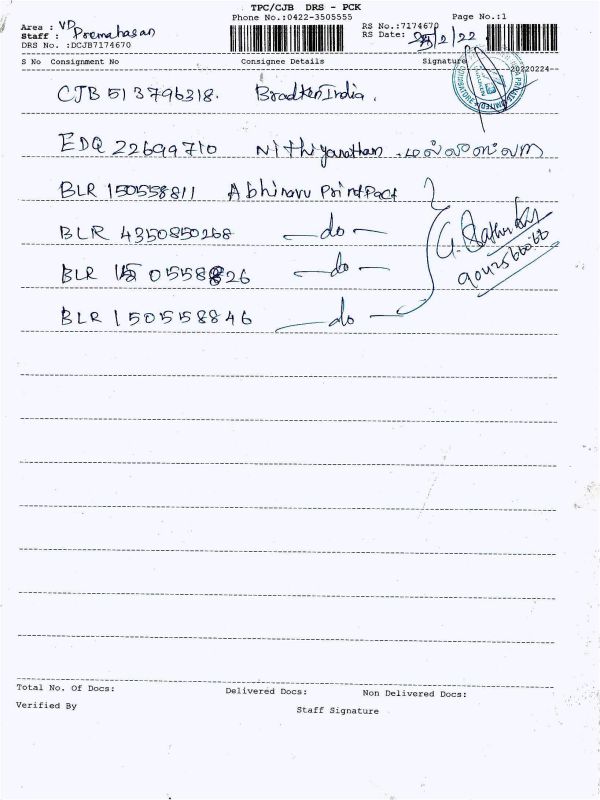 TPC/CJB DRS - PCK
Phone No.:0422-3505555 Page No.:1
Area : VD RS No.:7174670
Staff : Premahasan RS Date: /2/22
DRS No. :DCJB7174670 20220224
S No Consignment No Consignee Details Signature
CJB 513796318. Bradken India.
EDQ 22699710 Nithiyanathan
BLR 150558811 Abhinav Print Pact
BLR 4350850268 —do—
BLR 150558826 —do—
BLR 150558846 —do—
Total No. Of Docs: Delivered Docs: Non Delivered Docs:
Verified By Staff Signature